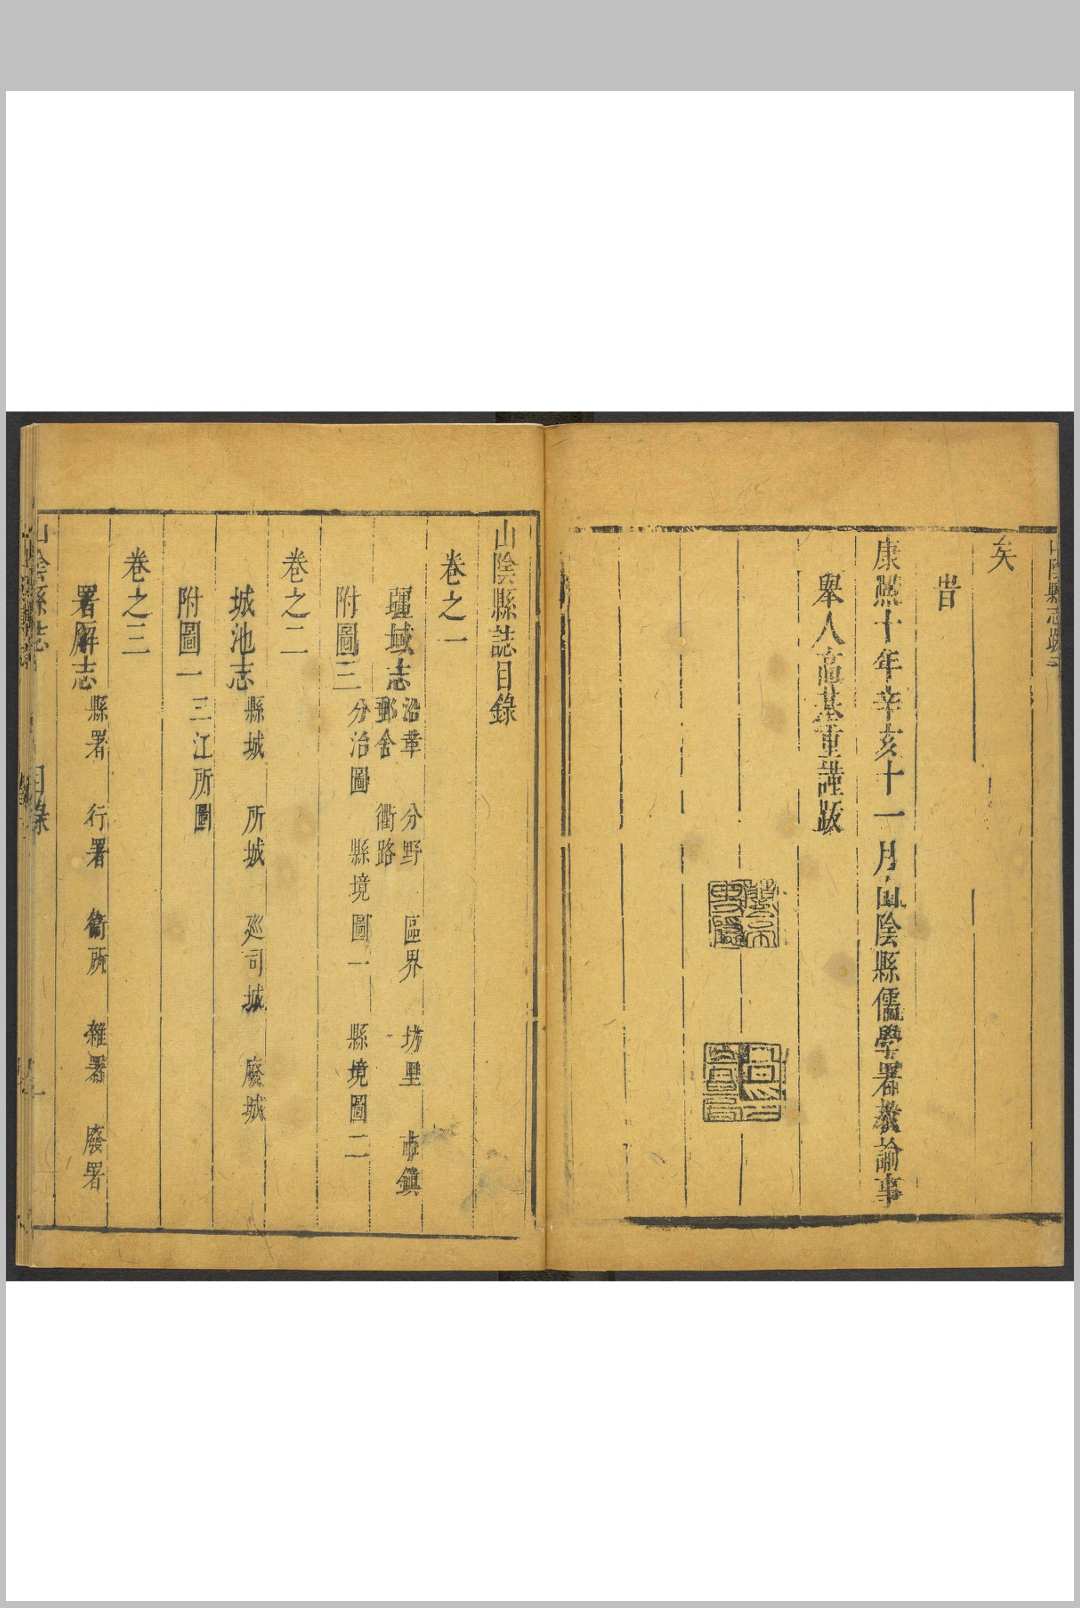 矣
旹
康熙十年辛亥十一月山陰縣儒學署教諭事
舉人高基重謹跋
山陰縣誌目錄
卷之一
疆域志 沿革 分野 區界 坊里 市鎮
郵舍 衢路
附圖三 分治圖 縣境圖一 縣境圖二
卷之二
城池志 縣城 所城 廵司城 廢城
附圖一 三江所圖
卷之三
署廨志 縣署 行署 衛所 雜署 廢署
山陰縣誌 目錄 一